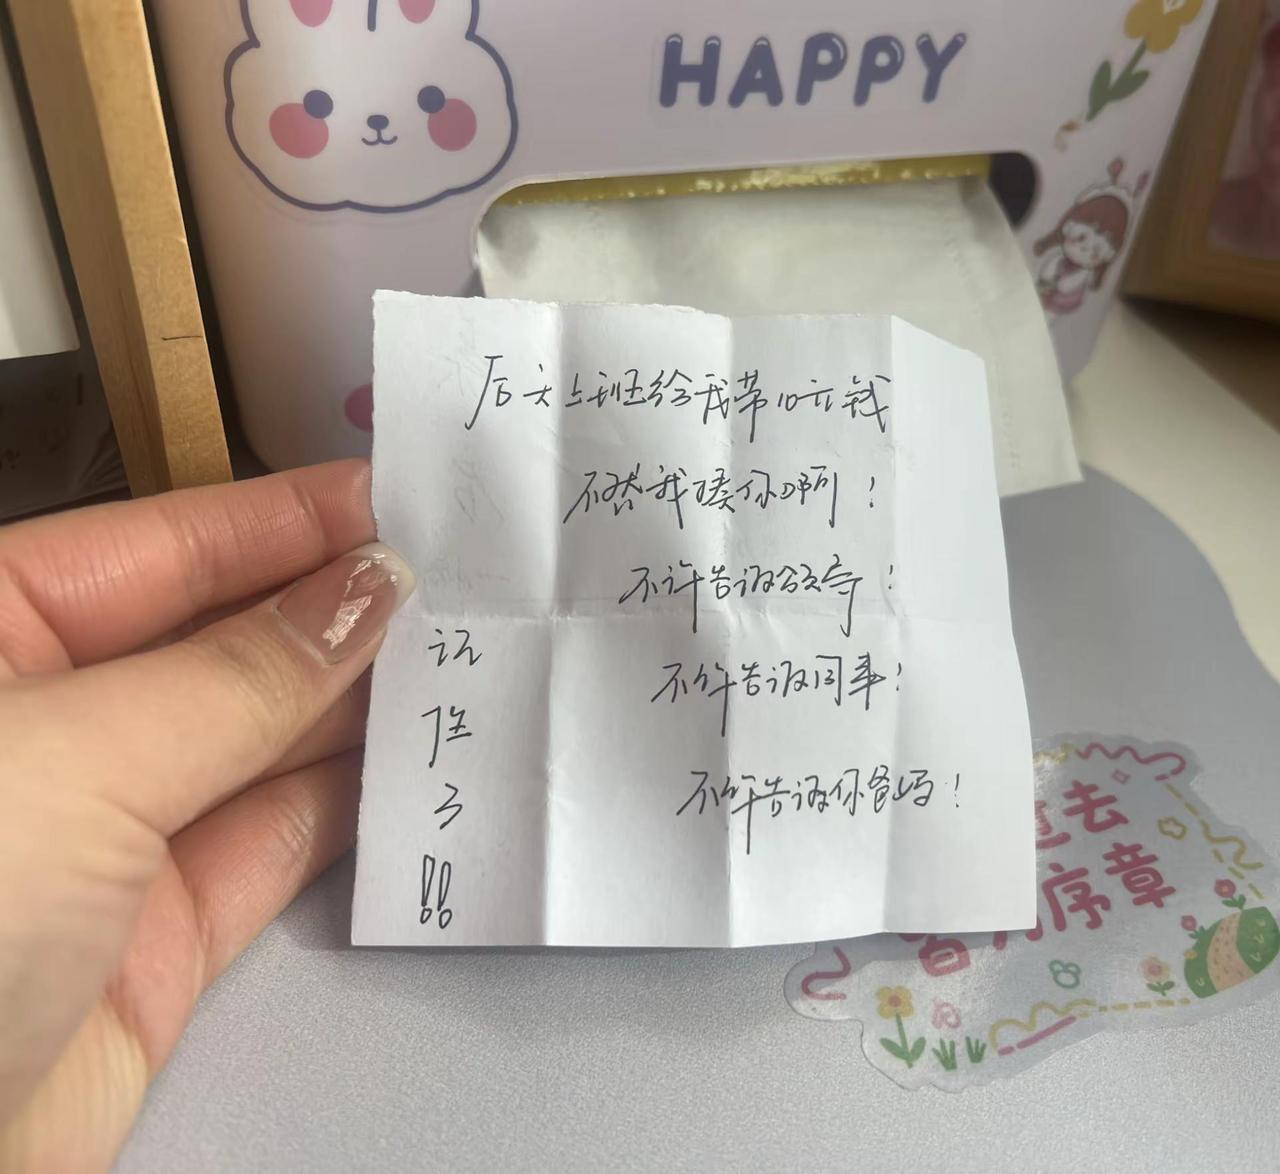 HAPPY
后天上班给我带10元钱
不然我揍你啊!
不许告诉领导!
不许告诉同事!
不许告诉你爸妈!
记
住
了
!!
去
序章